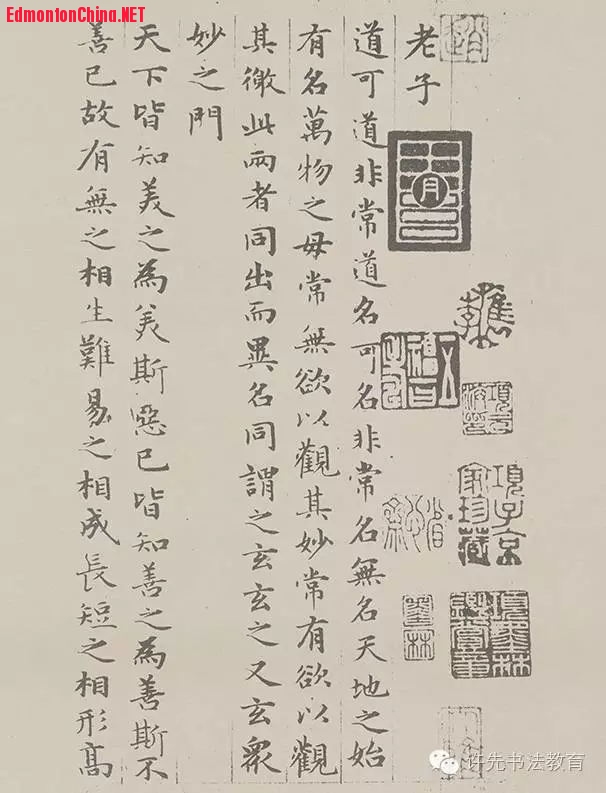 EdmontonChina.NET
老子
道可道非常道名可名非常名無名天地之始
有名萬物之母常無欲以觀其妙常有欲以觀
其徼此兩者同出而異名同謂之玄玄之又玄眾
妙之門
天下皆知美之為美斯惡已皆知善之為善斯不
善已故有無之相生難易之相成長短之相形高
項子京
家珍藏
墨林
许先书法教育